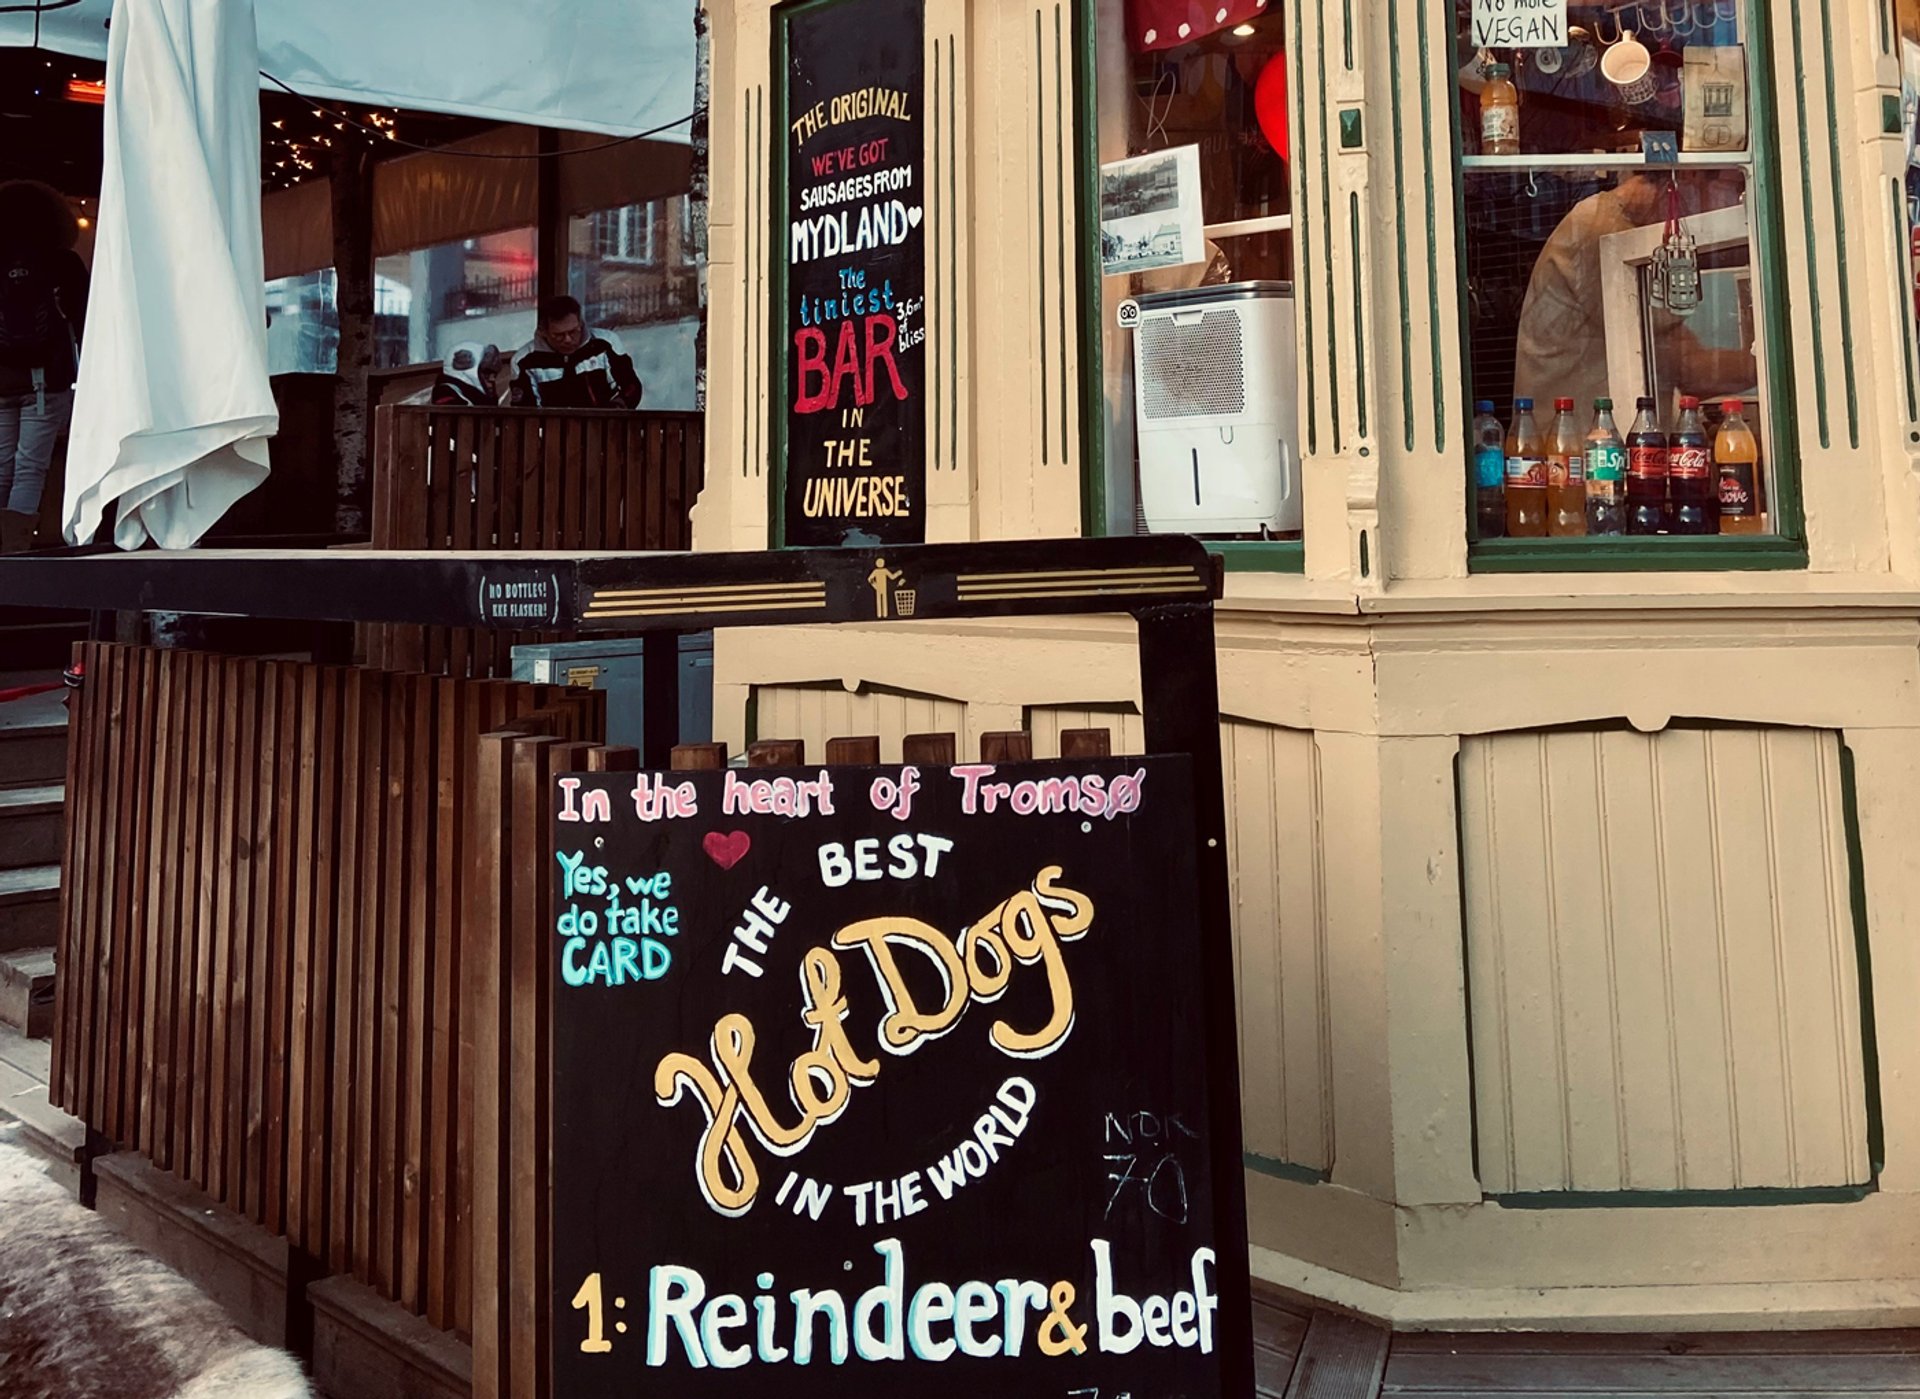 No more
VEGAN
THE ORIGINAL
WE'VE GOT
SAUSAGES FROM
MYDLAND
The
tiniest
BAR
3,6m²
of
bliss
IN
THE
UNIVERSE
Coca-Cola
Coca-Cola
NO BOTTLES!
IKKE FLASKER!
In the heart of Tromsø
Yes, we
do take
CARD
THE BEST
Hot Dogs
IN THE WORLD
NOK
70
1: Reindeer & beef